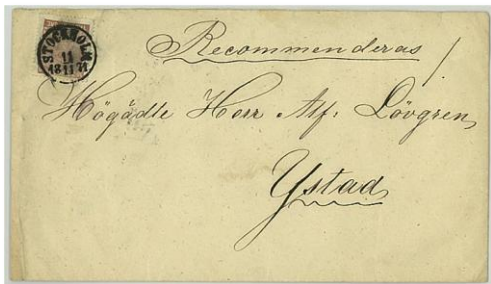 STOCKHOLM
11
18 11 71
Recommenderas
Högädle Herr Alf: Lövgren,
Ystad,